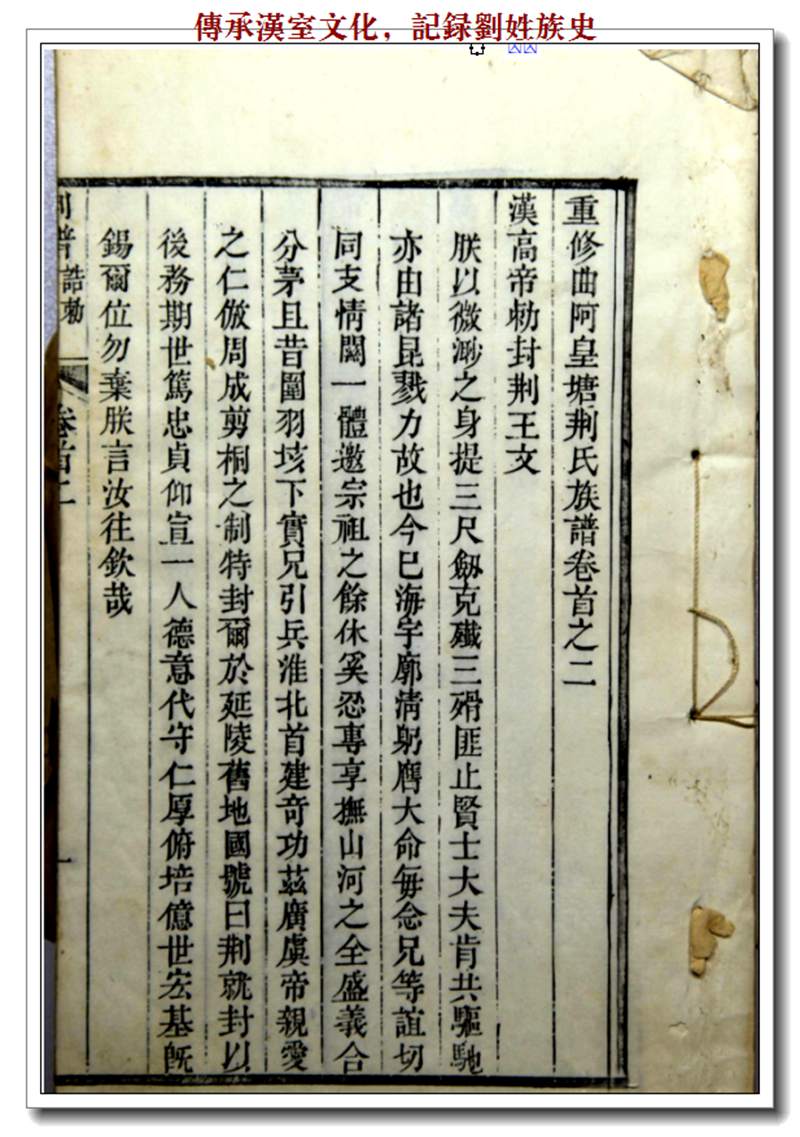 傳承漢室文化，記録劉姓族史
重修曲阿皇塘荆氏族譜卷首之二
漢高帝勅封荆王文
朕以微渺之身提三尺劔克殲三殤匪止賢士大夫肯共驅馳
亦由諸昆戮力故也今巳海宇廓清躬膺大命每念兄等誼切
同支情關一體邀宗祖之餘休奚忍專享撫山河之全盛義合
分茅且昔圍羽垓下實兄引兵淮北首建竒功茲廣虞帝親愛
之仁倣周成剪桐之制特封爾於延陵舊地國號曰荆就封以
後務期世篤忠貞仰宣一人德意代守仁厚俯培億世宏基旣
錫爾位勿棄朕言汝往欽哉
譜 誥勅 卷首二 一